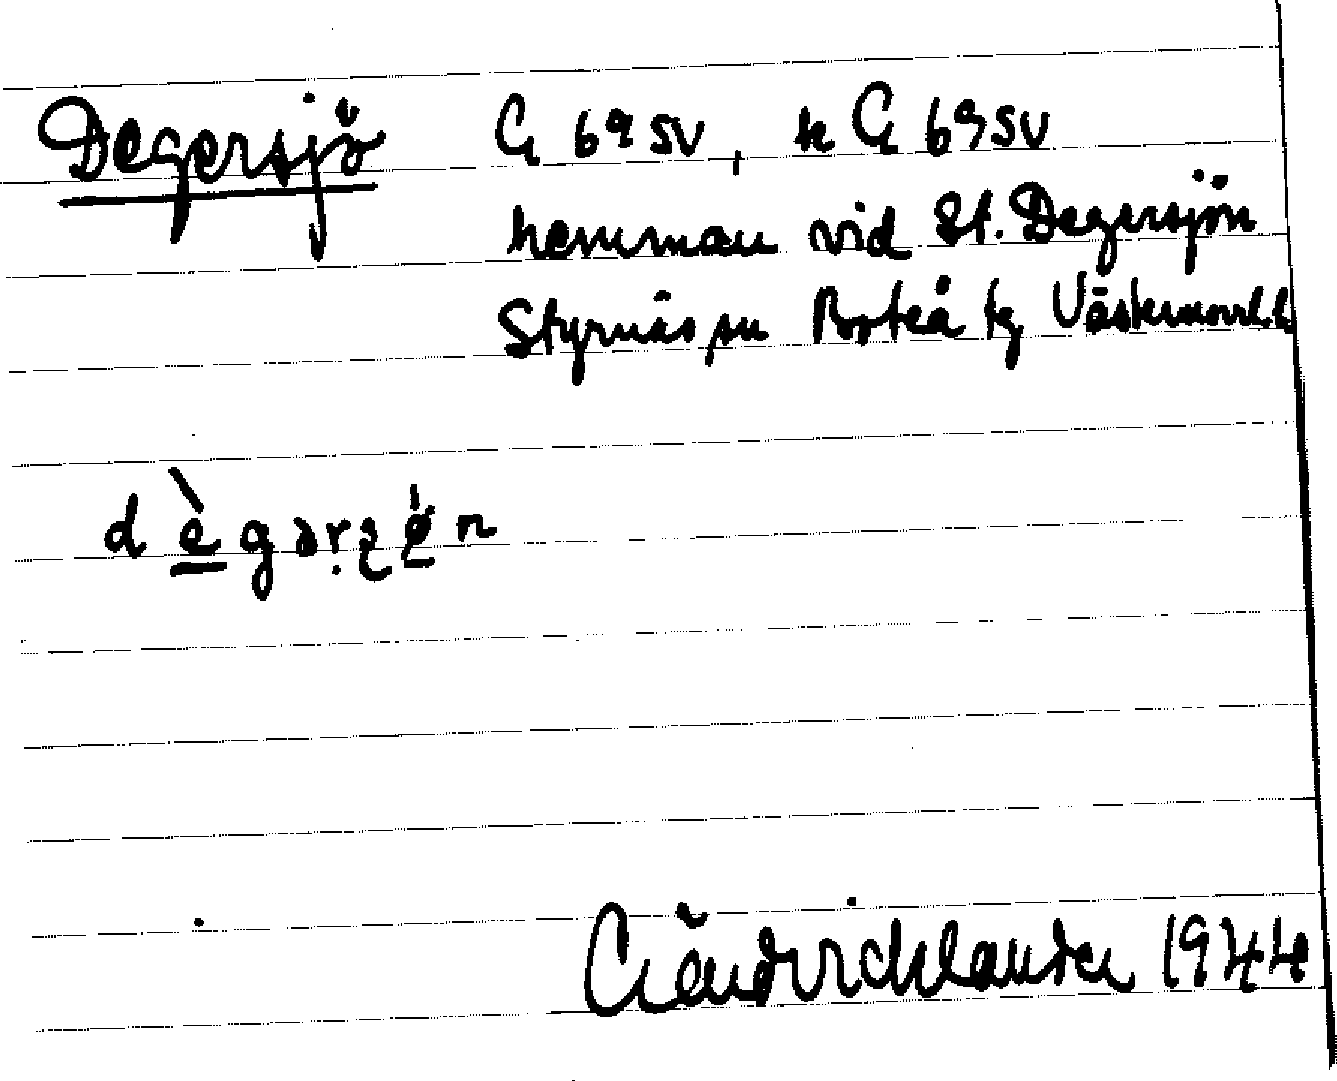 Degersjö G 69 SV, tc G 69 SV
hemman vid St. Degersjön
Styrnäs sn Boteå tg Västernorrl. l.
dègərʂø̀n
1944